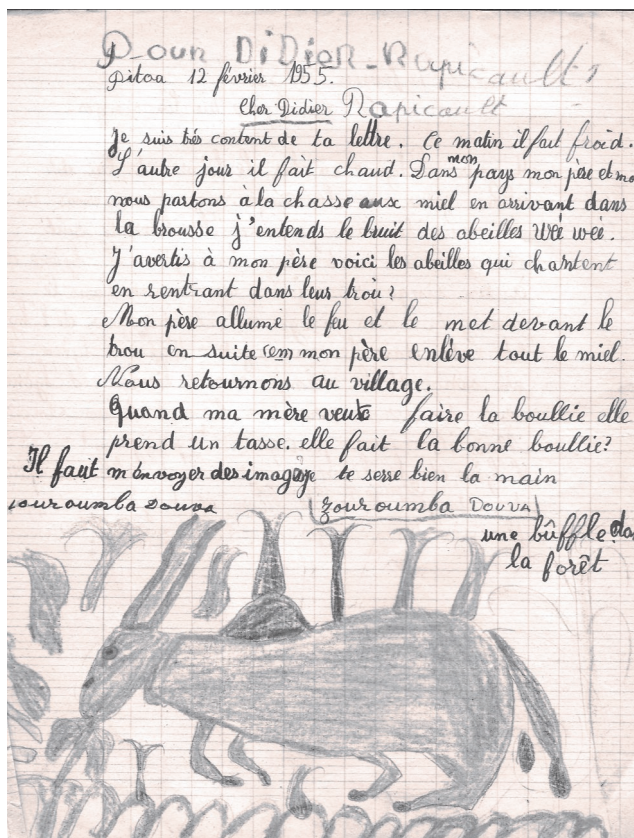 Pour DiDier - Rapicault
Pitoa 12 février 1955.
Cher Didier Rapicault
Je suis trés content de ta lettre. Ce matin il fait froid.
L'autre jour il fait chaud. Dans mon pays mon père et mo
nous partons à la chasse aux miel en arrivant dans
la brousse j'entends le bruit des abeilles wéé wéé.
J'avertis à mon père voici les abeilles qui chantent
en rentrant dans leur trou?
Mon père allume le feu et le met devant le
trou en suite mon père enlève tout le miel.
Nous retournons au village.
Quand ma mère veut faire la boullie elle
prend un tasse. elle fait la bonne boullie?
Il faut m'envoyer des image te serre bien la main
zouroumba DOUVA
ouroumba DOUVA
une bûffle da
la forêt